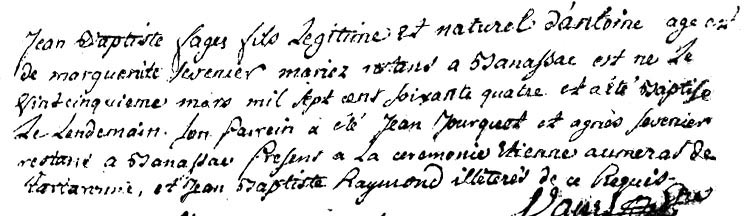 Jean Baptiste fages fils Legitime et naturel d'antoine age et
de marguerite sevenier mariez restans a Banassac est ne Le
vintcinquieme mars mil sept cens soixante quatre et a été Baptise
Le Lendemain. son parrein a été Jean Pourquet et agnès sevenier
restans a Banassac Presens a La ceremonie Etienne aumeras de
et Jean Baptiste Raymond illeterés de ce Requis